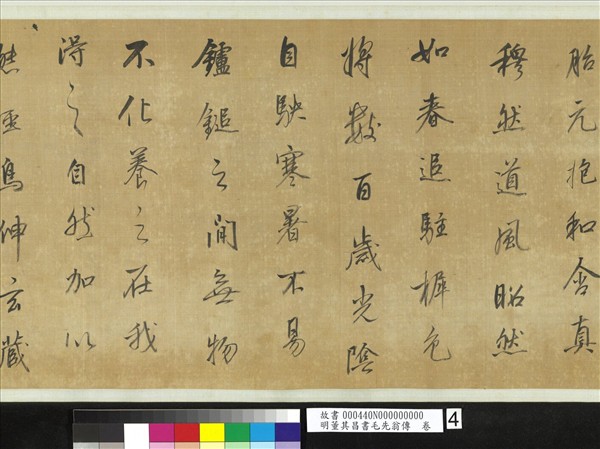 胎元抱和含真
穆然道風昭然
如春追駐色
将数百歲光陰
自駃寒暑不易
鑪鎚之間無物
不化養之在我
得之自然加以
鳥伸玄藏
故書 000440N000000000
明董其昌書毛先翁傳 卷
4